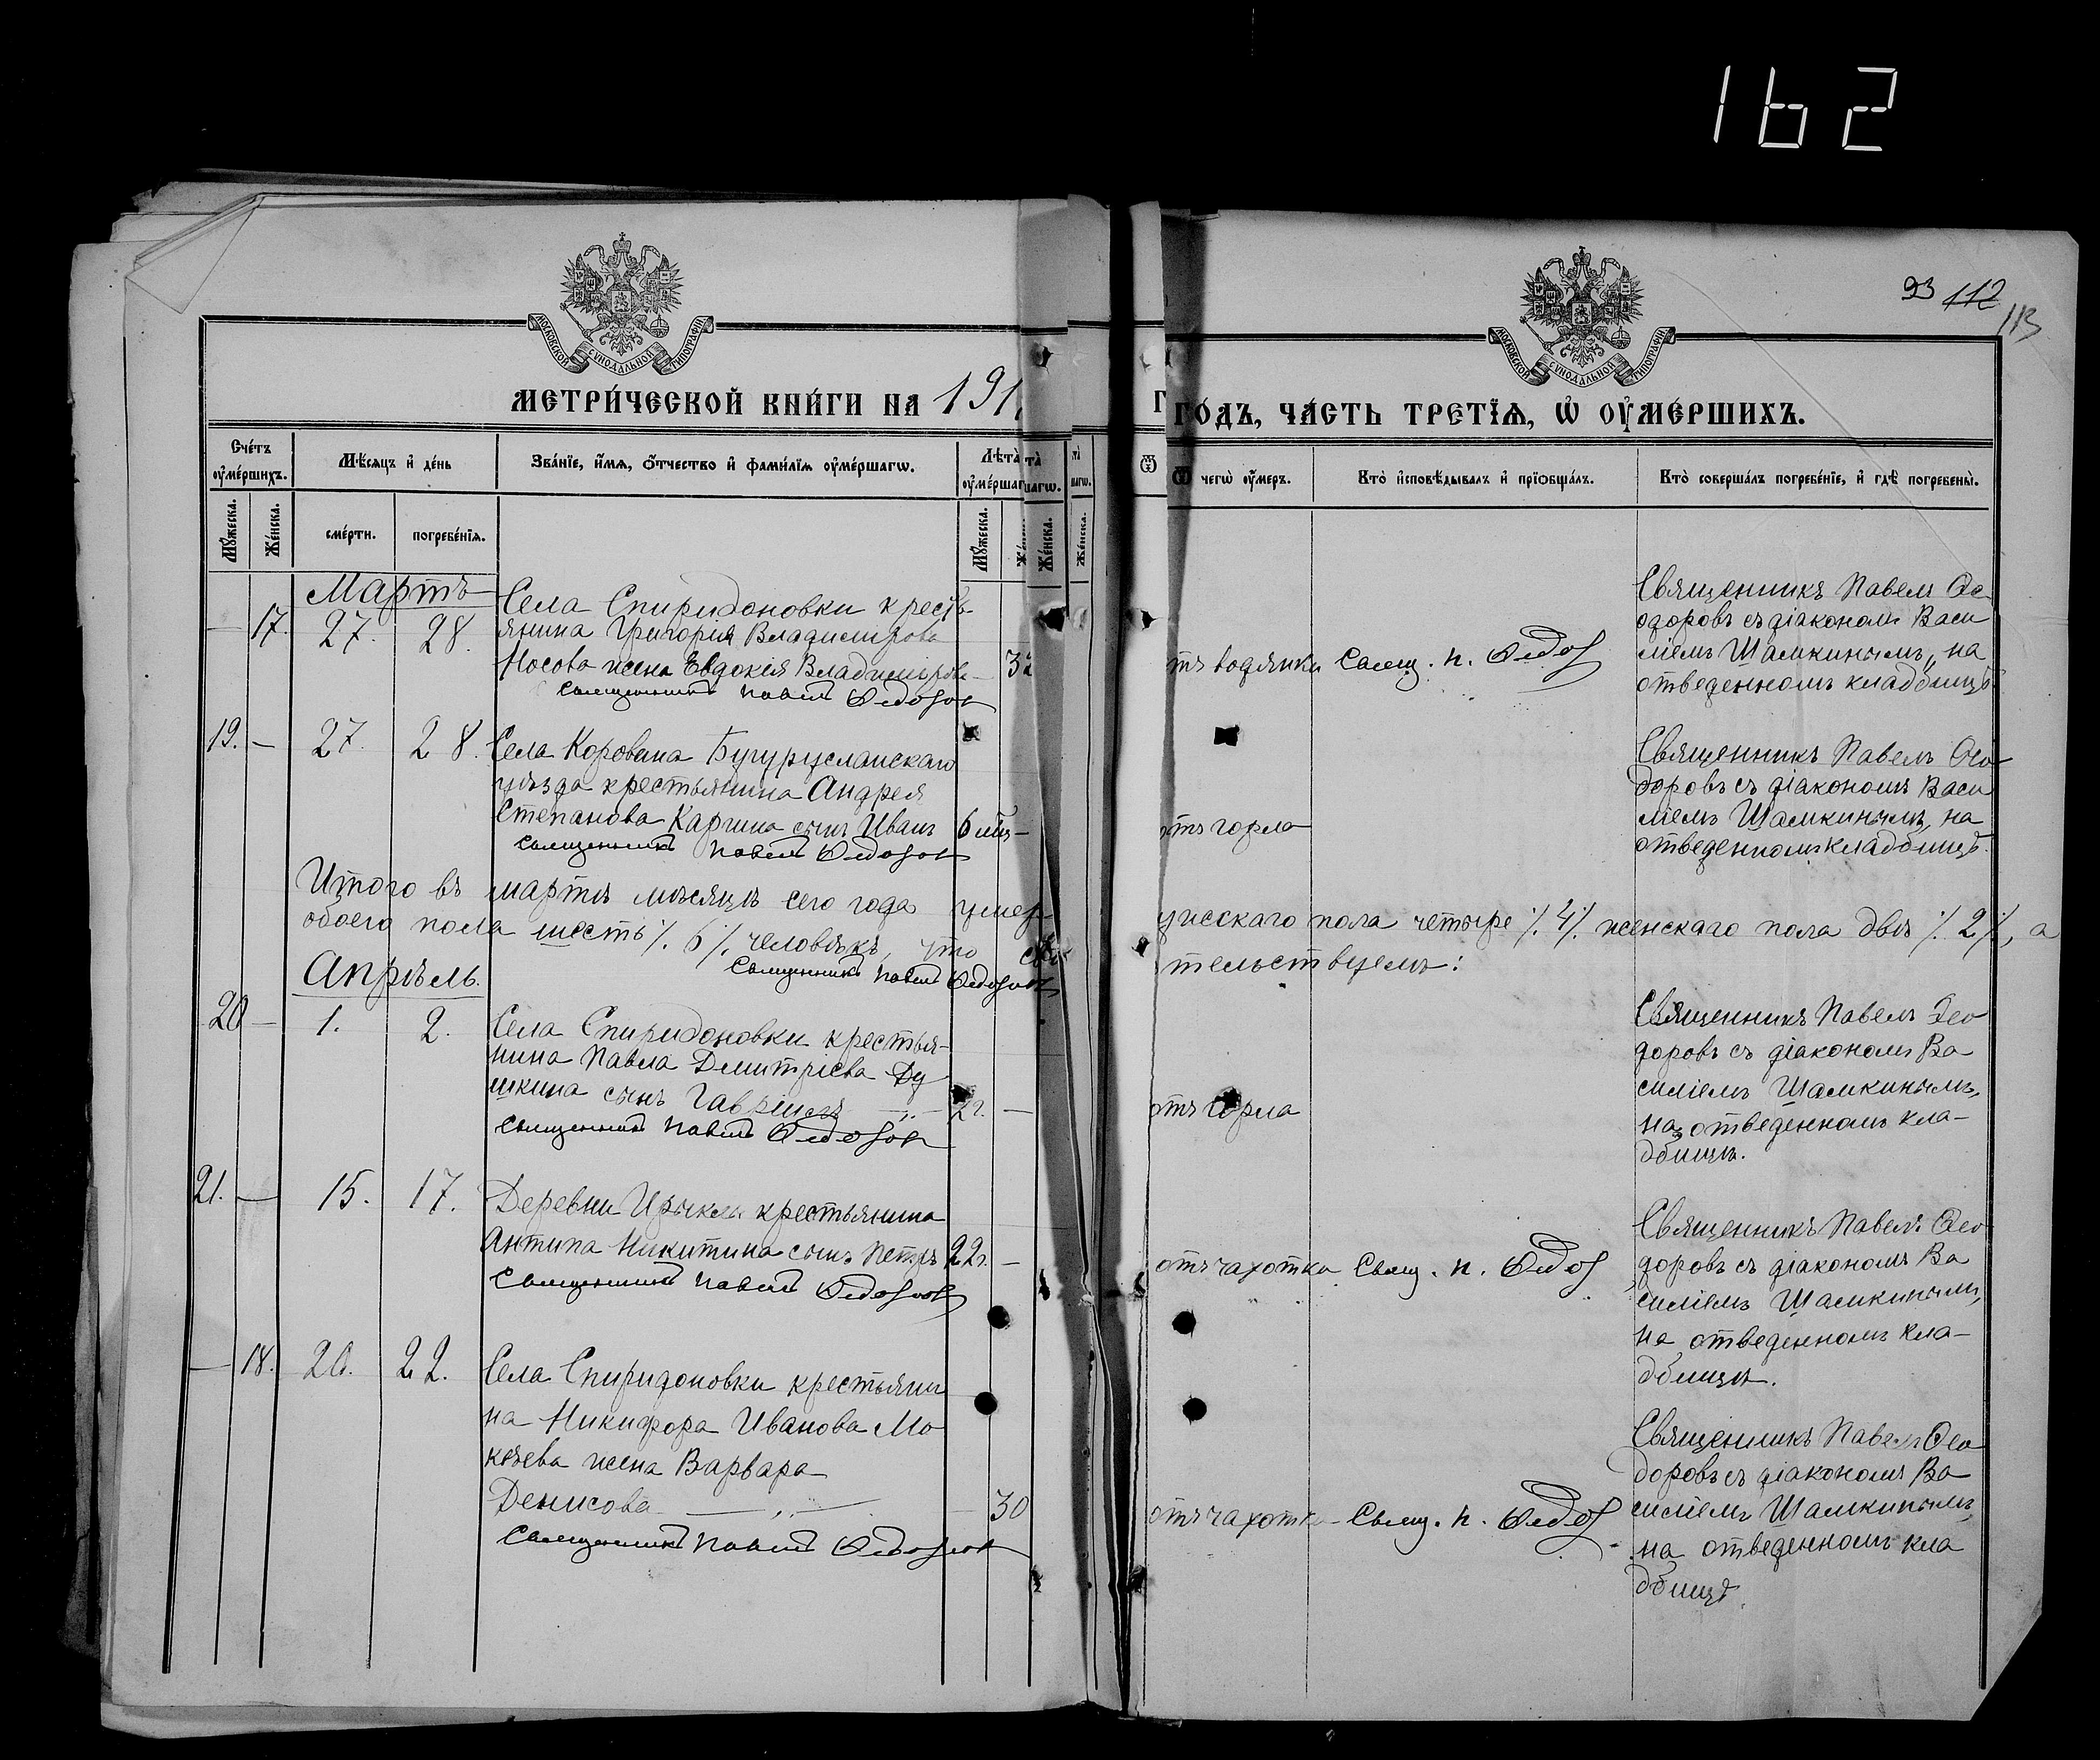 162
93 112
113
МОСКОВСКОЙ СѴНОДАЛЬНОЙ ТИПОГРАФІИ
МОСКОВСКОЙ СѴНОДАЛЬНОЙ ТИПОГРАФІИ
МЕТРИ́ЧЕСКОЙ КНИ́ГИ НА 191
ГО́ДЪ, ЧА́СТЬ ТРЕ́ТЇѦ, Ѡ҆ ОУ҆МЕ́РШИХЪ.
Сче́тъ оу҆ме́ршихъ.
Мѣ́сяцъ и҆ де́нь
Зва́нїе, и҆́мѧ, ѻ҆́тчество и҆ фами́лїѧ оу҆ме́ршагѡ.
Лѣ́та оу҆ме́ршагѡ.
Ѿ чегѡ̀ оу҆́меръ.
Кто̀ и҆сповѣ́дывалъ и҆ прїѡбща́лъ.
Кто̀ соверша́лъ погребе́нїе, и҆ гдѣ̀ погребены̀.
Мꙋ́жеска.
Же́нска.
сме́рти.
погребе́нїѧ.
Мꙋ́жеска.
Же́нска.
Же́нска.
Мартъ
— 17. 27. 28. Села Спиридоновки кресть-
янина Григорія Владимірова
Носова жена Евдокія Владимірова — 32
Священникъ Павелъ Ѳедоровъ
тъ водянки Свящ. П. Ѳедор
Священникъ Павелъ Ѳе-
одоровъ съ діакономъ Васи
ліемъ Шамкинымъ, на
отведенномъ кладбищѣ.
19. — 27. 28. Села Коровина Бугурусланскаго
уѣзда крестьянина Андрея
Степанова Каргина сынъ Иванъ 6 мѣс —
Священникъ Павелъ Ѳедоровъ
отъ горла
Священникъ Павелъ Ѳео-
доровъ съ діакономъ Васи
ліемъ Шамкинымъ, на
отведенномъ кладбищѣ.
Итого въ мартѣ мѣсяцѣ сего года умер-
ужескаго пола четыре ⁒ 4 ⁒ женскаго пола двѣ ⁒ 2 ⁒, а
обоего пола шесть ⁒ 6 ⁒ человѣкъ, что
тельствуемъ:
Священникъ Павелъ Ѳедоровъ
Апрѣль.
20 — 1. 2. Села Спиридоновки крестья-
нина Павла Димитріева Ду
шкина сынъ Гавріилъ — 2 г. —
Священникъ Павелъ Ѳедоровъ
отъ горла
Священникъ Павелъ Ѳео
доровъ съ діакономъ Ва
силіемъ Шамкинымъ,
на отведенномъ кла-
дбищѣ.
21. — 15. 17. Деревни Ирыклы крестьянина
Антипа Никитина сынъ Петръ 22 г. —
Священникъ Павелъ Ѳедоровъ
отъ чахотки Свящ. П. Ѳедор
Священникъ Павелъ Ѳео
доровъ съ діакономъ Ва
силіемъ Шамкинымъ,
на отведенномъ кла-
дбищѣ.
— 18. 20. 22. Села Спиридоновки крестьяни
на Никифора Иванова Мо
кѣева жена Варвара
Денисова — 30
Священникъ Павелъ Ѳедоровъ
отъ чахотки Свящ. П. Ѳедор
Священникъ Павелъ Ѳео
доровъ съ діакономъ Ва
силіемъ Шамкинымъ,
на отведенномъ кла
дбищѣ.